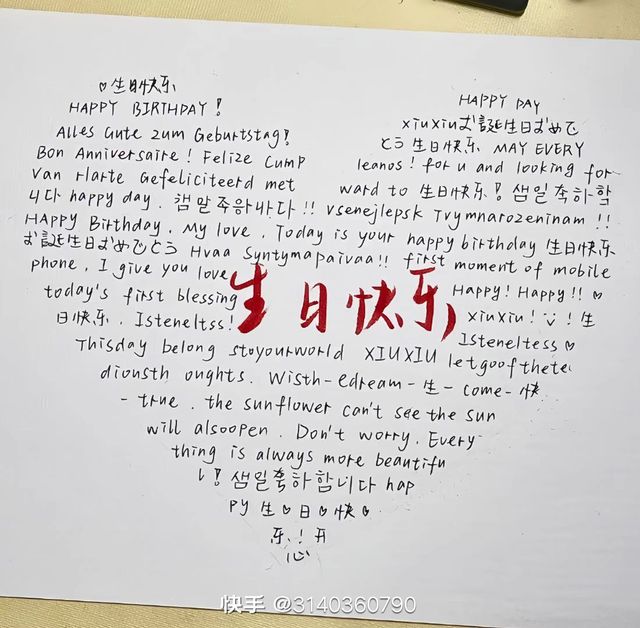 ♡生日快乐
HAPPY BIRTHDAY!
Alles Gute zum Geburtstag!
Bon Anniversaire! Felize Cump
Van Harte Gefeliciteerd met
happy day.
HAPPY Birthday. My love. Today is your happy birthday 生日快乐
HAPPY DAY
xiuxiuお誕生日おめで
とう生日快乐 MAY EVERY
leanos! for u and looking for
ward to 生日快乐!
Vsenejlepsk Tvymnarozeninam!!
お誕生日おめでとう Hvaa Syntymapaivaa!! first moment of mobile
phone. I give you love
Happy! Happy!! ♡
today's first blessing
生日快乐
xiuxiu! !生
日快乐. Isteneltss!
Isteneltess ♡
Thisday belong stoyourworld XIUXIU letgoofthete
dionsth oughts. Wisth-edream-生-come-快
-true. the sunflower can't see the sun
will alsoopen. Don't worry. Every
thing is always more beautifu
l! 샘일축하합니다 hap
py 生♡日♡快♡
乐!开
心
快手 @3140360790